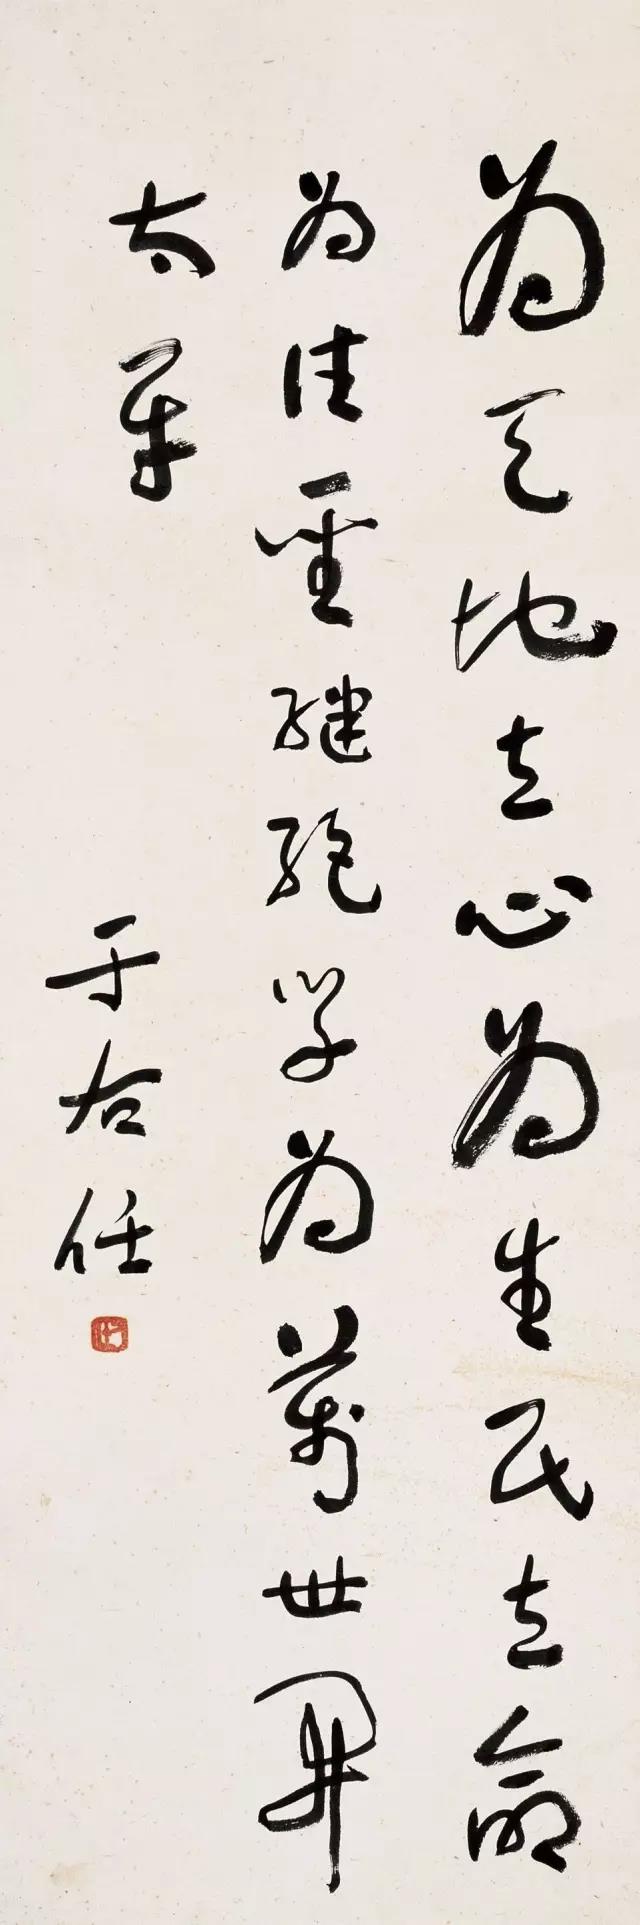 為天地立心為生民立命
為往聖繼絕學為萬世開
太平
于右任